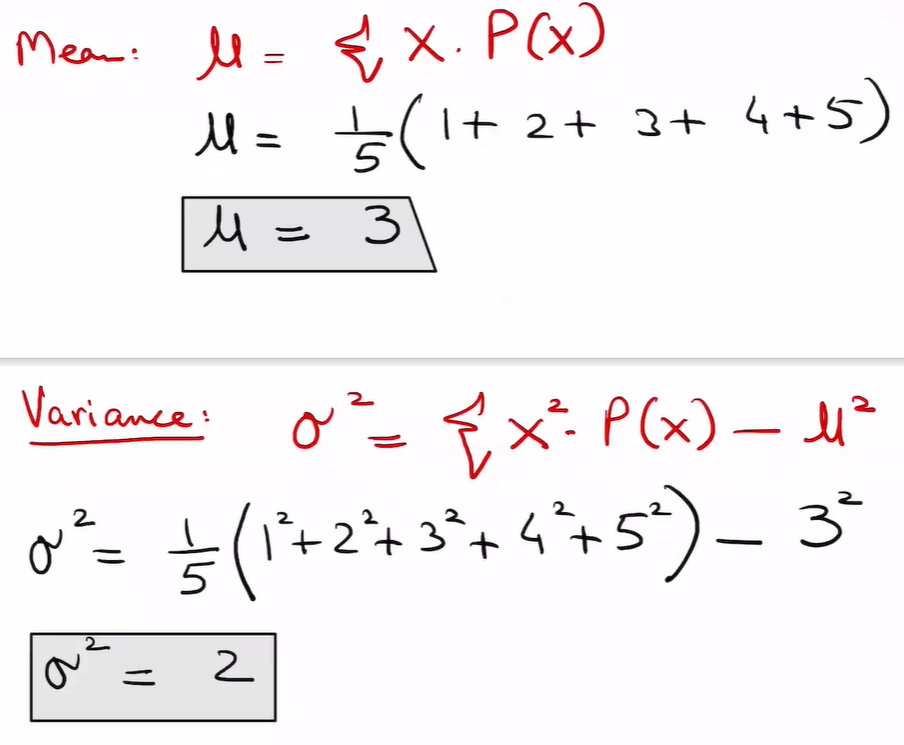 Mean: μ = Σ x . P(x)
μ = 1/5 (1 + 2 + 3 + 4 + 5)
μ = 3
Variance: σ² = Σ x² . P(x) – μ²
σ² = 1/5 (1² + 2² + 3² + 4² + 5²) – 3²
σ² = 2